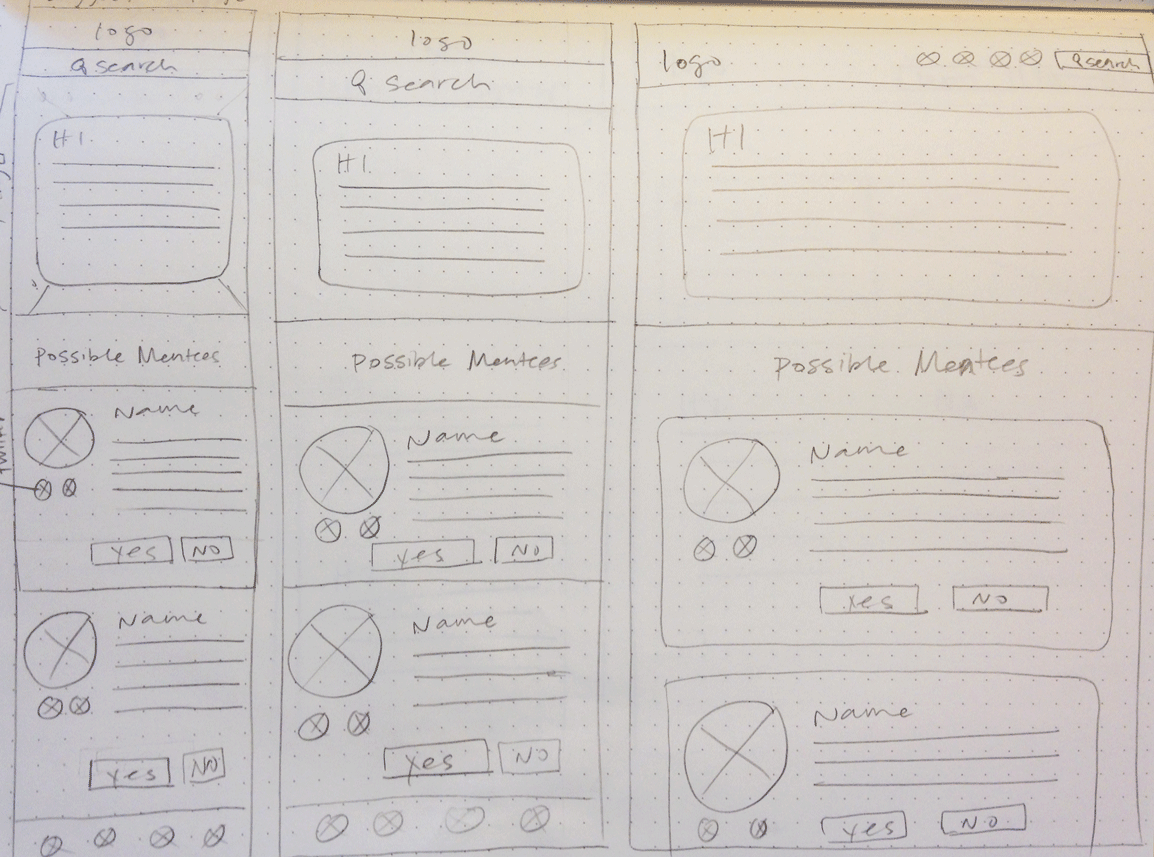 logo
search
H1
Possible Mentees
Name
Yes
No
Name
Yes
No
logo
search
H1
Possible Mentees
Name
Yes
No
Name
Yes
No
logo
search
H1
Possible Mentees
Name
Yes
No
Name
Yes
No